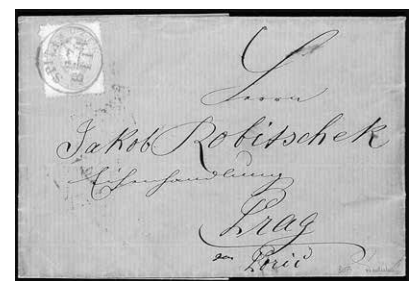 Herrn
Jakob Robitschek
Eisenhandlung
Prag
Poric